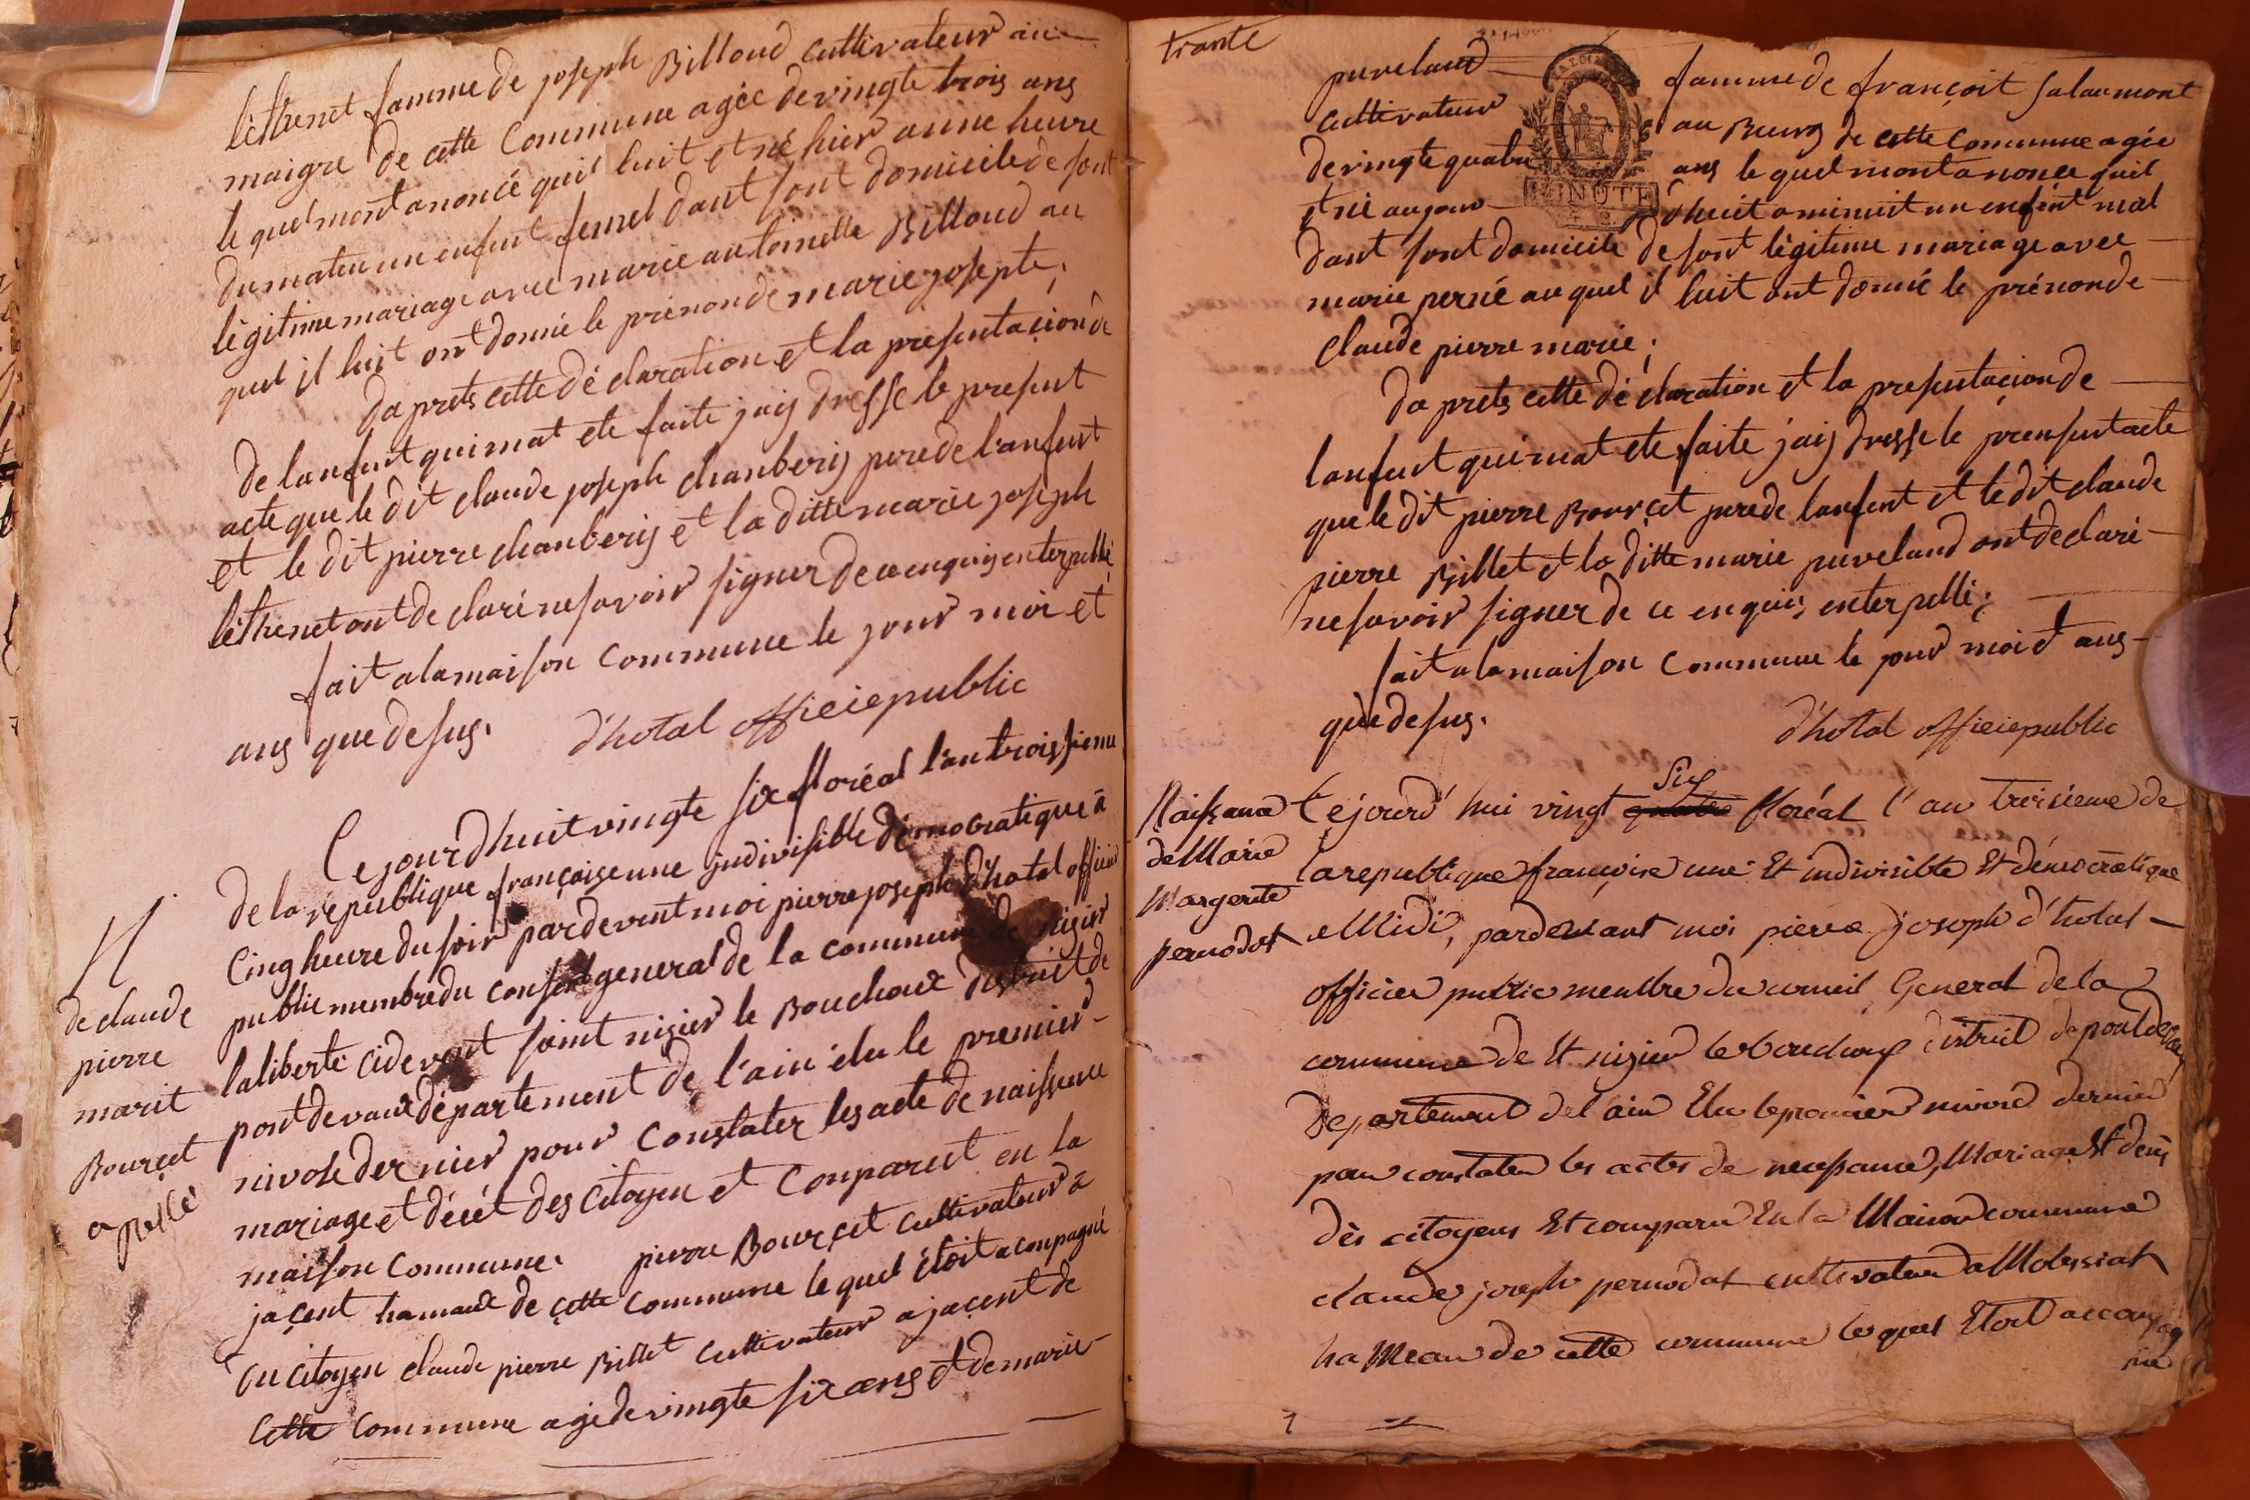 lethenet famme de joseph Billoud cultivateur au
maigre de cette Commune agée de vingte trois ans
le quel mont anoncé quil luit et né hier a une heure
du maten un enfent femel dant sont domicile de sont
légitime mariage avec marie antoinette Billoud au
quel il luit ont donné le prénon de marie josepte,
da prets cette dé claration et la presentacion de
de lanfent qui mat ete faite jaij dresse le present
acte que le dit claude joseph chanberij pere de l'anfent
et le dit pierre chanberij et la ditte marie joseph
lethenet ont de claré ne savoir signer de ce enquij enterpellé,
fait a la maison commune le jour moi et
ans que desus. d'hotal officie public
Ce jour dhuit vingte six floréal l'an troissieme
de la république françaisse une jndivisible démocratique à
Cinq heure du soir par devent moi pierre joseph d'hotal officier
public membre du conseil general de la commune de nizier
la liberté cidevant saint nizier le Bouchoux district de
pont de vaux département de l'ain élu le premier
nivose der nier pour constater les acte de naissence
mariage et décét des Citoyen et Conparut en la
maison commune. pierre Bourçet cultivateur à
jaçent hamaux de cette commune le quel étoit aconpagné
du citoyen claude pierre Billet cultivateur a jaçent de
Cette commune agé de vingte six ans et de marie
N.
de claude
pierre
marit
Bourçet
a pellé
trante
puveland famme de françoit salaumont
cultivateur au Bourg de cette Commune agée
de vingte quatre ans le quel mont anonce quil
et né aujour dhuit a minuit un enfent mal
MINUTE
dant sont domicile de sont légitime mariage avec
marie perné au quel il luit ont donné le prénon de
Claude pierre marie;
da prets cette dé claration et la presentacion de
lanfent qui mat ete faite j'aij dresse le prensent acte
que le dit pierre Bourçet pere de lanfent et le dit claude
pierre Billet et la ditte marie puveland ont de claré
ne savoir signer de ce en quij enterpellé;
fait a la maison commune le jour moi et ans
que desus. d'hotal officie public
Naissance
de Marie
Margerite
pernodet
Cejourd'hui vingt quatre six floréal l'an troisieme de
la republique françoise une Et indivisible Et démocratique
a Midi, pardevant moi pierre joseph d'hotal
officier public membre du conseil General de la
commune de St nizier le bouchoux district de pontdevaux
Departement de l'ain Elu le premier nivose dernier
pour constater les actes de naissance, Mariage Et decès
dès citoyens Et comparu En la Maison commune
claude joseph pernodat cultivateur a Molissiat
ha Meau de cette commune lequel Etoit accompag
né